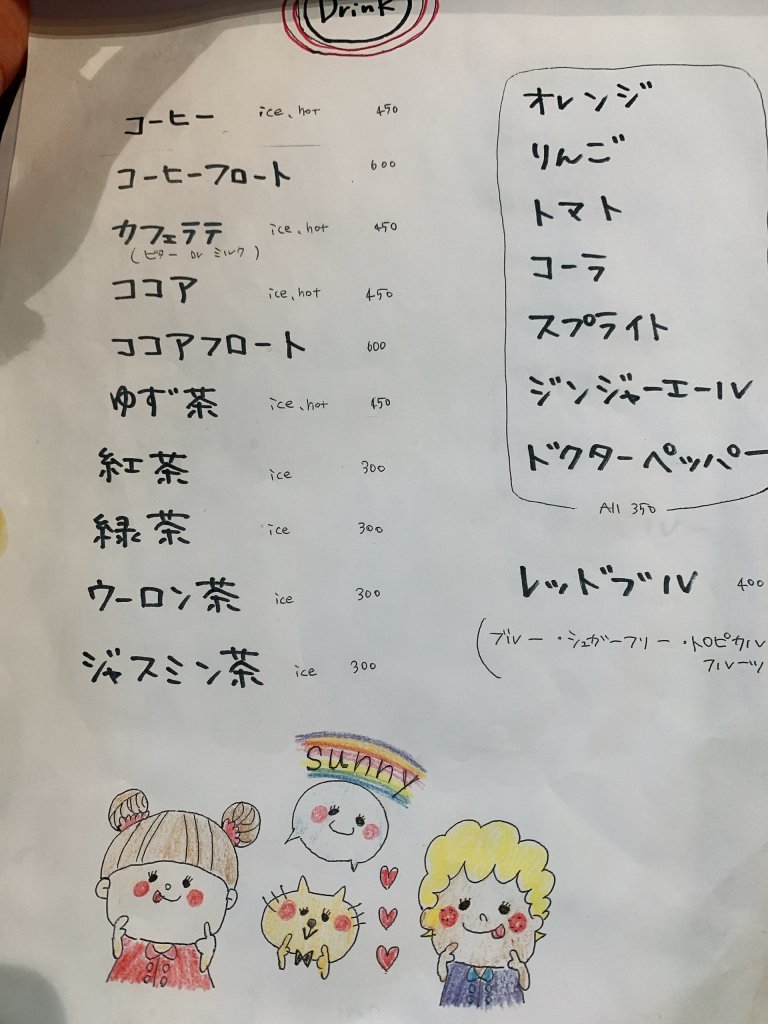 Drink
コーヒー ice、hot 450
コーヒーフロート 600
カフェラテ ice、hot 450
(ビター or ミルク)
ココア ice、hot 450
ココアフロート 600
ゆず茶 ice、hot 450
紅茶 ice 300
緑茶 ice 300
ウーロン茶 ice 300
ジャスミン茶 ice 300
オレンジ
りんご
トマト
コーラ
スプライト
ジンジャーエール
ドクターペッパー
All 350
レッドブル 400
(ブルー・シュガーフリー・トロピカル
フルーツ
sunny